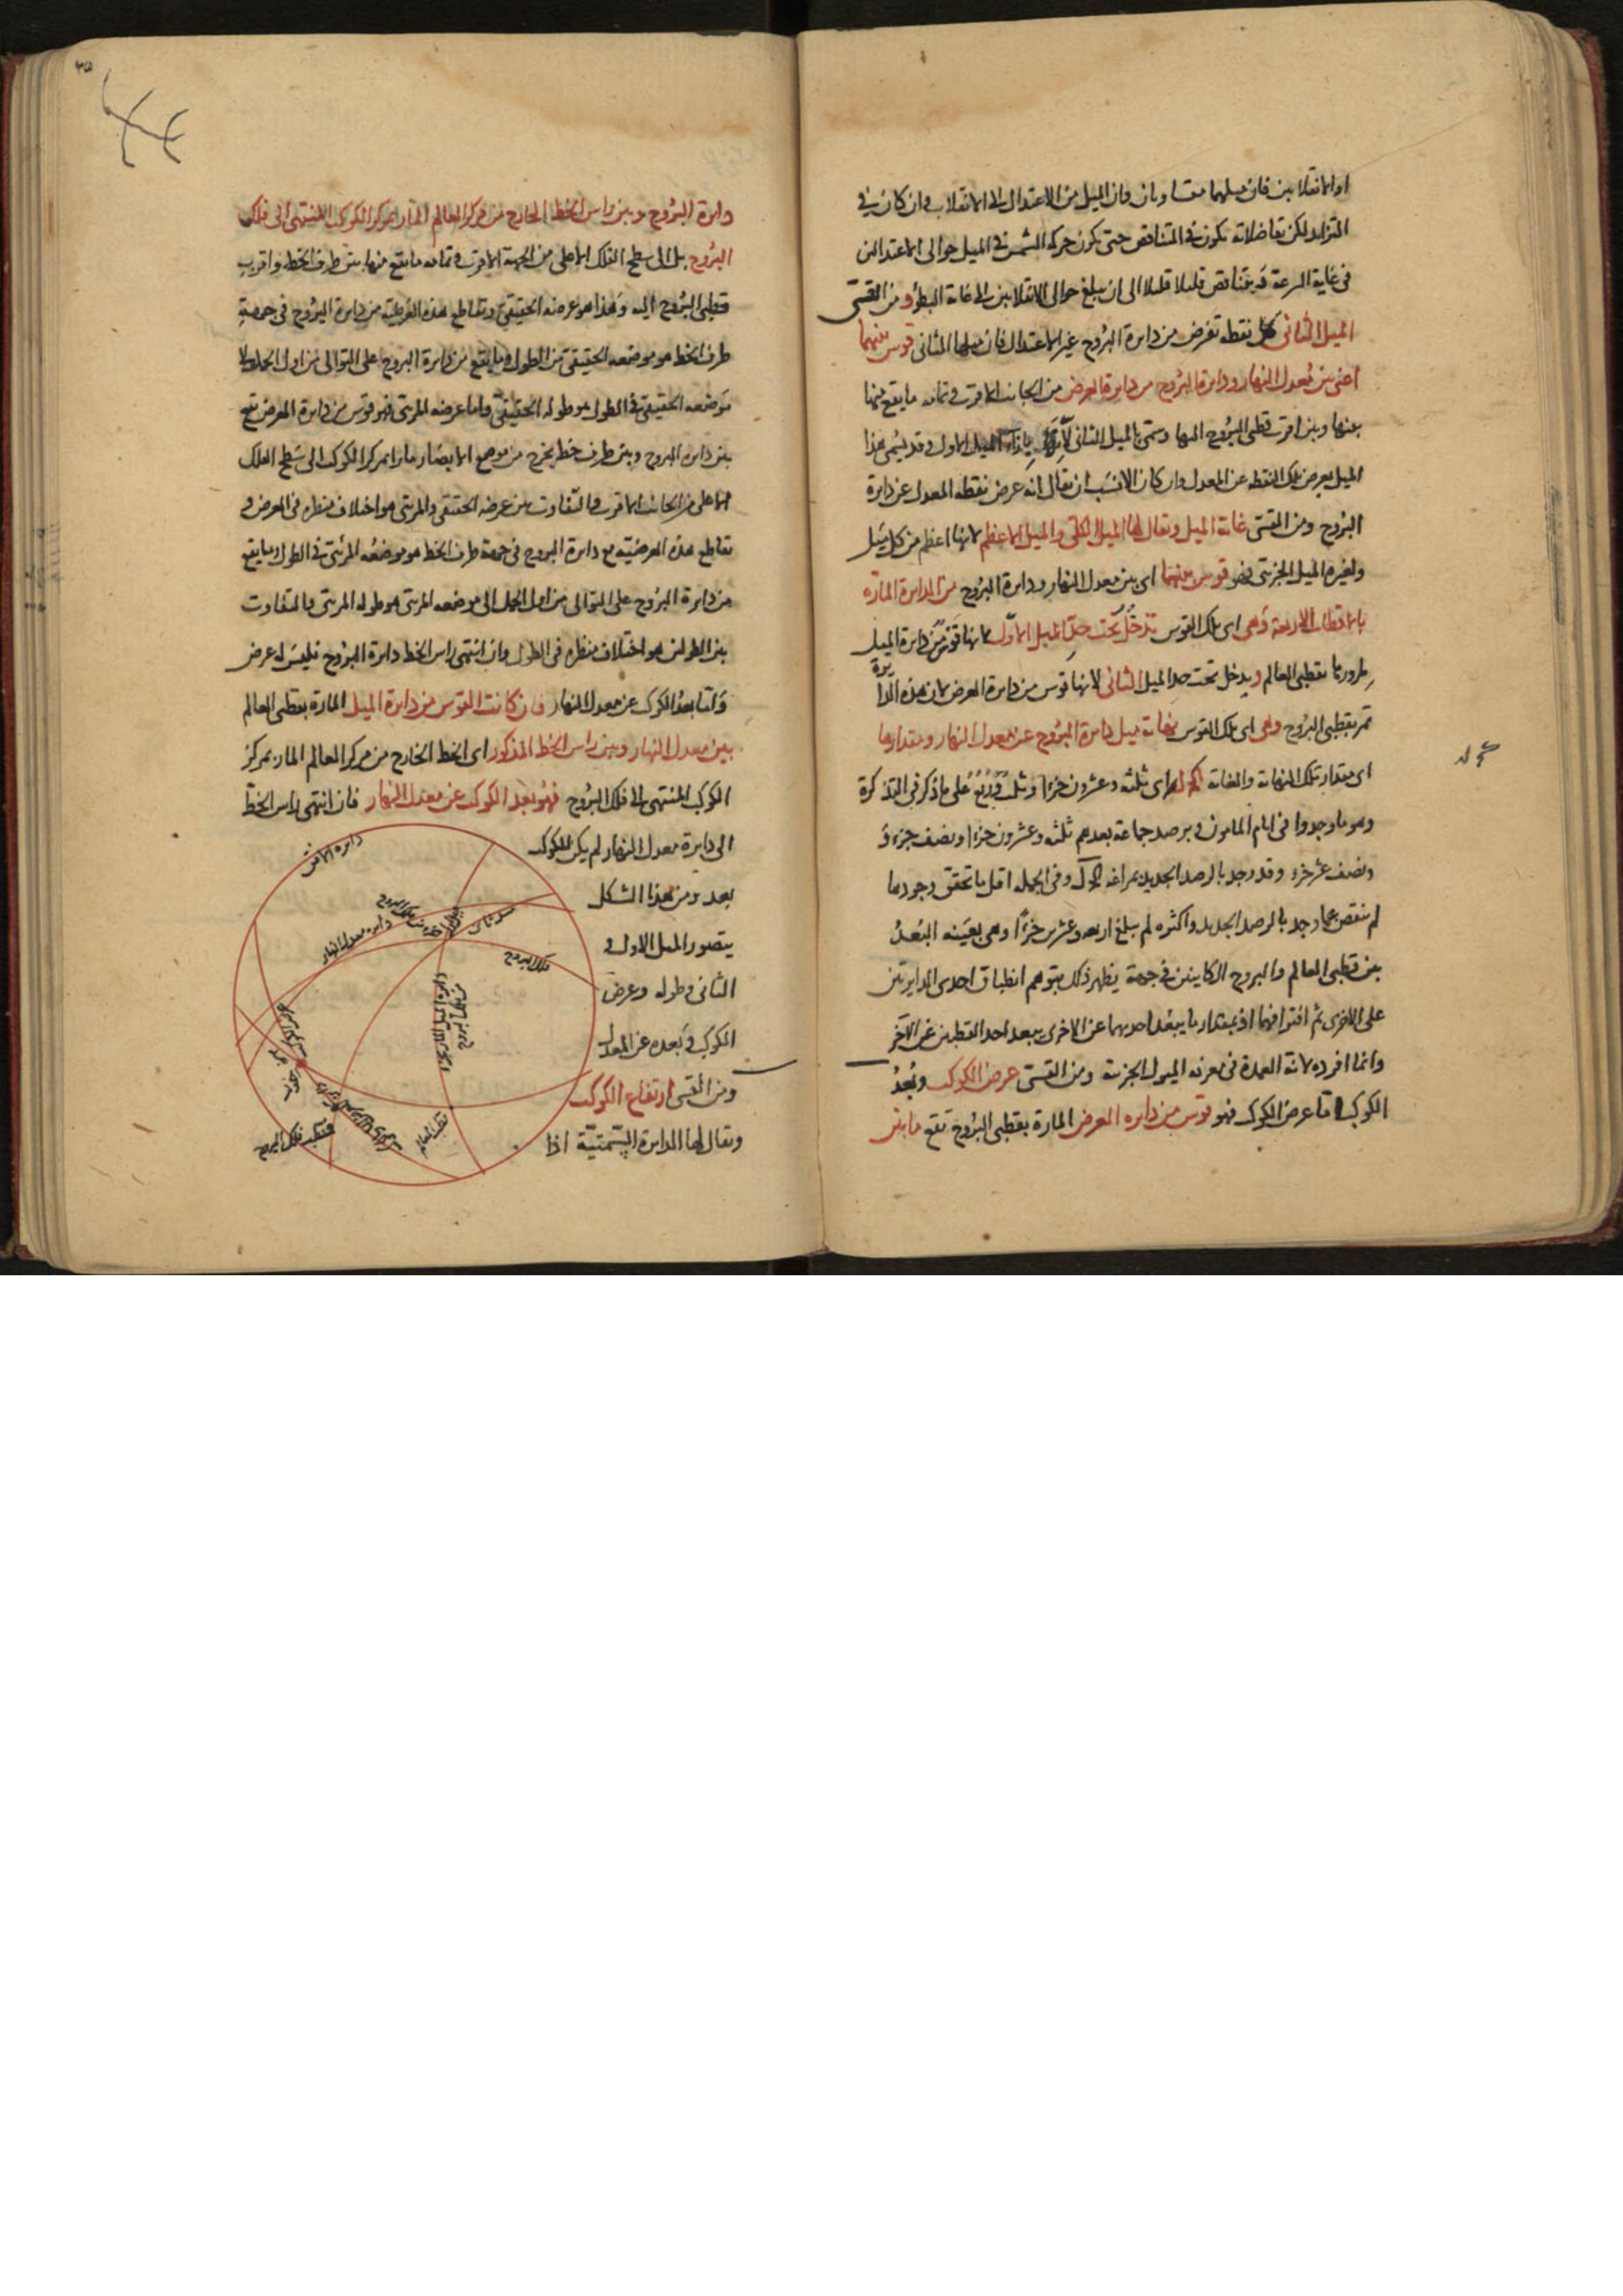 او الانقلابين فان ميلهما متساويان وان الميل من الاعتدال الى الانقلاب وان كان فى
التزايد لكن تفاضلاته تكون فى التناقص حتى تكون حركة الشمس فى الميل حوالى الاعتدالين
فى غاية السرعة ثم يتناقص قليلا قليلا الى ان يبلغ حوالى الانقلابين الى غاية البطؤ ومن القسى
الميل الثانى كل نقطه تفرض من دايرة البروج غير الاعتدال فان ميلها الثانى قوس بينهما
اعنى بين معدل النهار ودايرة البروج من دايرة العرض من الجانب الاقرب ما يقع منها
بينها وبين اقرب قطبى البروج اليها وسمى بالميل الثانى لانها بازاء الميل الاول وقد يسمى هذا
الميل بعرض تلك النقطه عن المعدل وان كان الانسب ان يقال انه عرض نقطه المعدل عن دايرة
البروج ومن القسى غاية الميل ويقال لها الميل الكلى والميل الاعظم لانها اعظم من كل ميل
ولغيره الميل الجزئى فهو قوس بينهما اى بين معدل النهار ودايرة البروج من الدايرة المارة
بالاقطاب الاربعة وهى اى تلك القوس تدخل تحت حد الميل الاول لانها قوس من دايرة الميل
لمرورها بقطبى العالم ويدخل تحت حد الميل الثانى لانها قوس من دايرة العرض لان هذه الدايرة
تمر بقطبى البروج وهى اى تلك القوس نهاية ميل دايرة البروج عن معدل النهار ومقدارها
اى مقدار تلك النهاية والغاية كج له اى ثلثه وعشرون جزءا وثلث وربع على ما ذكر فى التذكرة
وهو ما وجدوا فى ايام المامون وبرصد جماعة بعدهم ثلثه وعشرون جزءا ونصف جزء و
ونصف عشر جزء وقد وجد بالرصد الجديد بمراغه كج ل وفى الجمله اقل ما تحقق وجودها
لم ينقص عما وجد بالرصد الجديد واكثره لم يبلغ اربعه وعشرين جزءا وهى بعينه البعد
بين قطبى العالم والبروج الكاينين فى جهة يظهر ذلك بتوهم انطباق احدى الدايرتين
على الاخرى ثم افتراقهما اذ بمقدار ما يبعد احديهما عن الاخرى يبعد احد القطبين عن الآخر
وانما افرده لانه العمدة فى معرفه الميول الجزئية ومن القسى عرض الكوكب وبعد
الكوكب اما عرض الكوكب فهو قوس من دايره العرض المارة بقطبى البروج تقع ما بين
دايرة البروج وبين راس الخط الخارج من مركز العالم المار بمركز الكوكب المنتهى الى فلك
البروج بل الى سطح الفلك الاعلى من الجهة الاقرب ما يقع منها بين طرف الخط واقرب
قطبى البروج اليه وهذا هو عرضه الحقيقى وتقاطع هذه العرضية من دايرة البروج فى جهة
طرف الخط هو موضعه الحقيقى من الطول وما يقع من دايرة البروج على التوالى من اول الحمل الى
موضعه الحقيقى فى الطول هو طوله الحقيقى واما عرضه المرئى فهو قوس من دايرة العرض تقع
بين دايرة البروج وبين طرف خط يخرج من موضع الابصار مارا بمركز الكوكب الى سطح الفلك
الاعلى من الجانب الاقرب والتفاوت بين عرضه الحقيقى والمرئى هو اختلاف منظره فى العرض و
تقاطع هذه العرضيه مع دايرة البروج فى جهة طرف الخط هو موضعه المرئى فى الطول وما يقع
من دايرة البروج على التوالى من اول الحمل الى موضعه المرئى هو طوله المرئى والتفاوت
بين الطولين هو اختلاف منظره فى الطول وان انتهى راس الخط دايرة البروج فليس له عرض
واما بعد الكوكب عن معدل النهار فان كانت القوس من دايرة الميل المارة بقطبى العالم
بين معدل النهار وبين راس الخط المذكور اى الخط الخارج من مركز العالم المار بمركز
الكوكب المنتهى الى فلك البروج فهو بعد الكوكب عن معدل النهار فان انتهى راس الخط
الى دايرة معدل النهار لم يكن للكوكب
بعد ومن هذا الشكل
يتصور الميل الاول و
الثانى وطوله وعرض
الكوكب وبعده عن المعدل
ومن القسى ارتفاع الكوكب
ويقال لها الدايرة السمتية اذا
دايره الافق
دايره معدل النهار
فلك البروج
ميل ثانى
قطب العالم
قطب فلك البروج